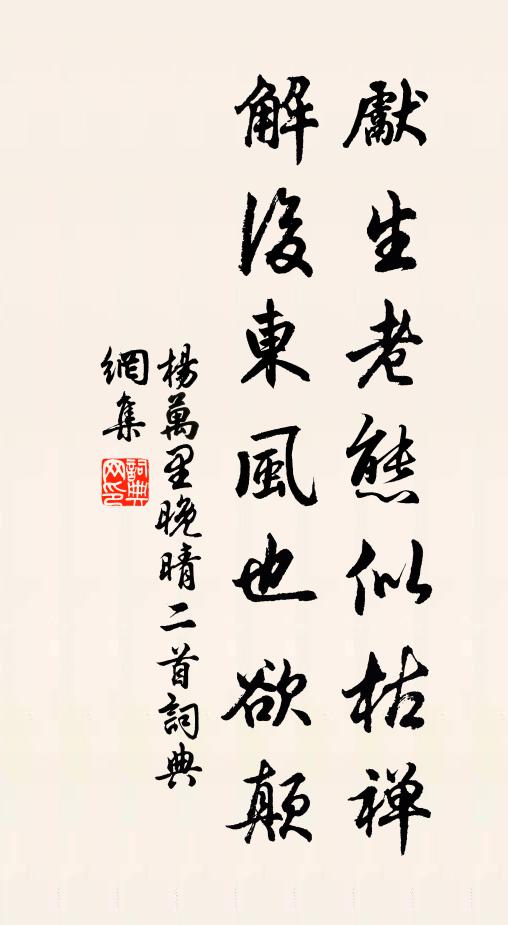 獻生老態似枯禪
解後東風也欲顛
楊萬里晚晴二首詞典
網集
詞典
网印